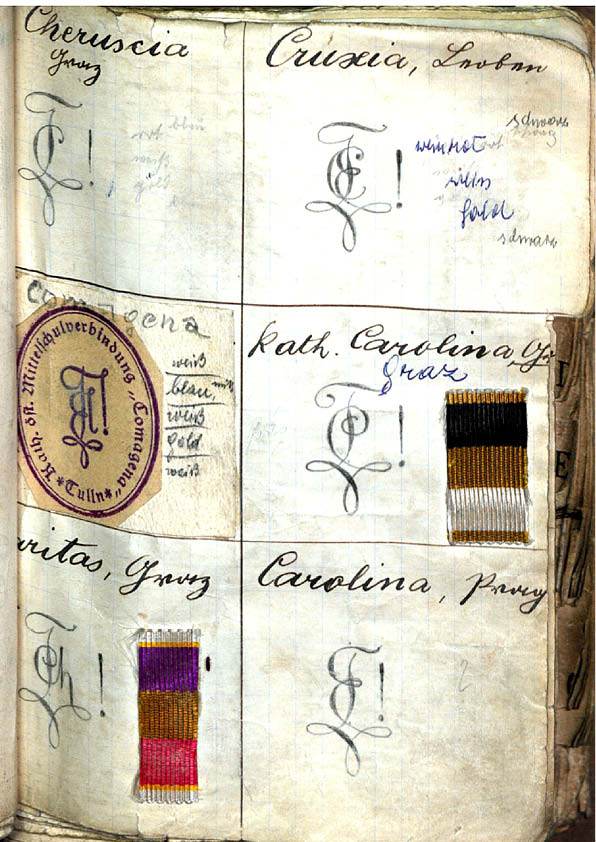 Cheruscia
Graz
rot blau
weiß
gold
Cruxia, Leoben
schwarz
weinrot
weiß
gold
schwarz
Comagena
Kath. öst. Mittelschulverbindung "Comagena"
*Tulln*
weiß
blau,
weiß
gold
weiß
Kath. Carolina, Gr
Graz
aritas, Graz
Carolina, Prag